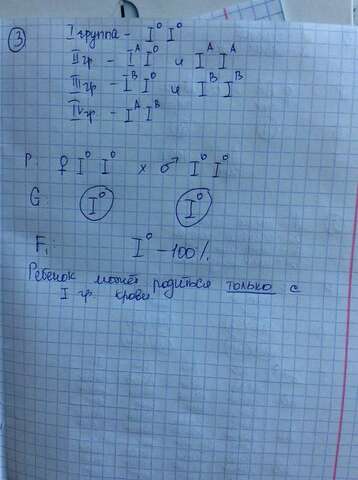 3
I группа - I⁰ I⁰
II гр - Iᴬ I⁰ и Iᴬ Iᴬ
III гр - Iᴮ I⁰ и Iᴮ Iᴮ
IV гр - Iᴬ Iᴮ
P: ♀ I⁰ I⁰ x ♂ I⁰ I⁰
G: I⁰ I⁰
F₁: I⁰ - 100%.
Ребенок может родиться только с
I гр. крови